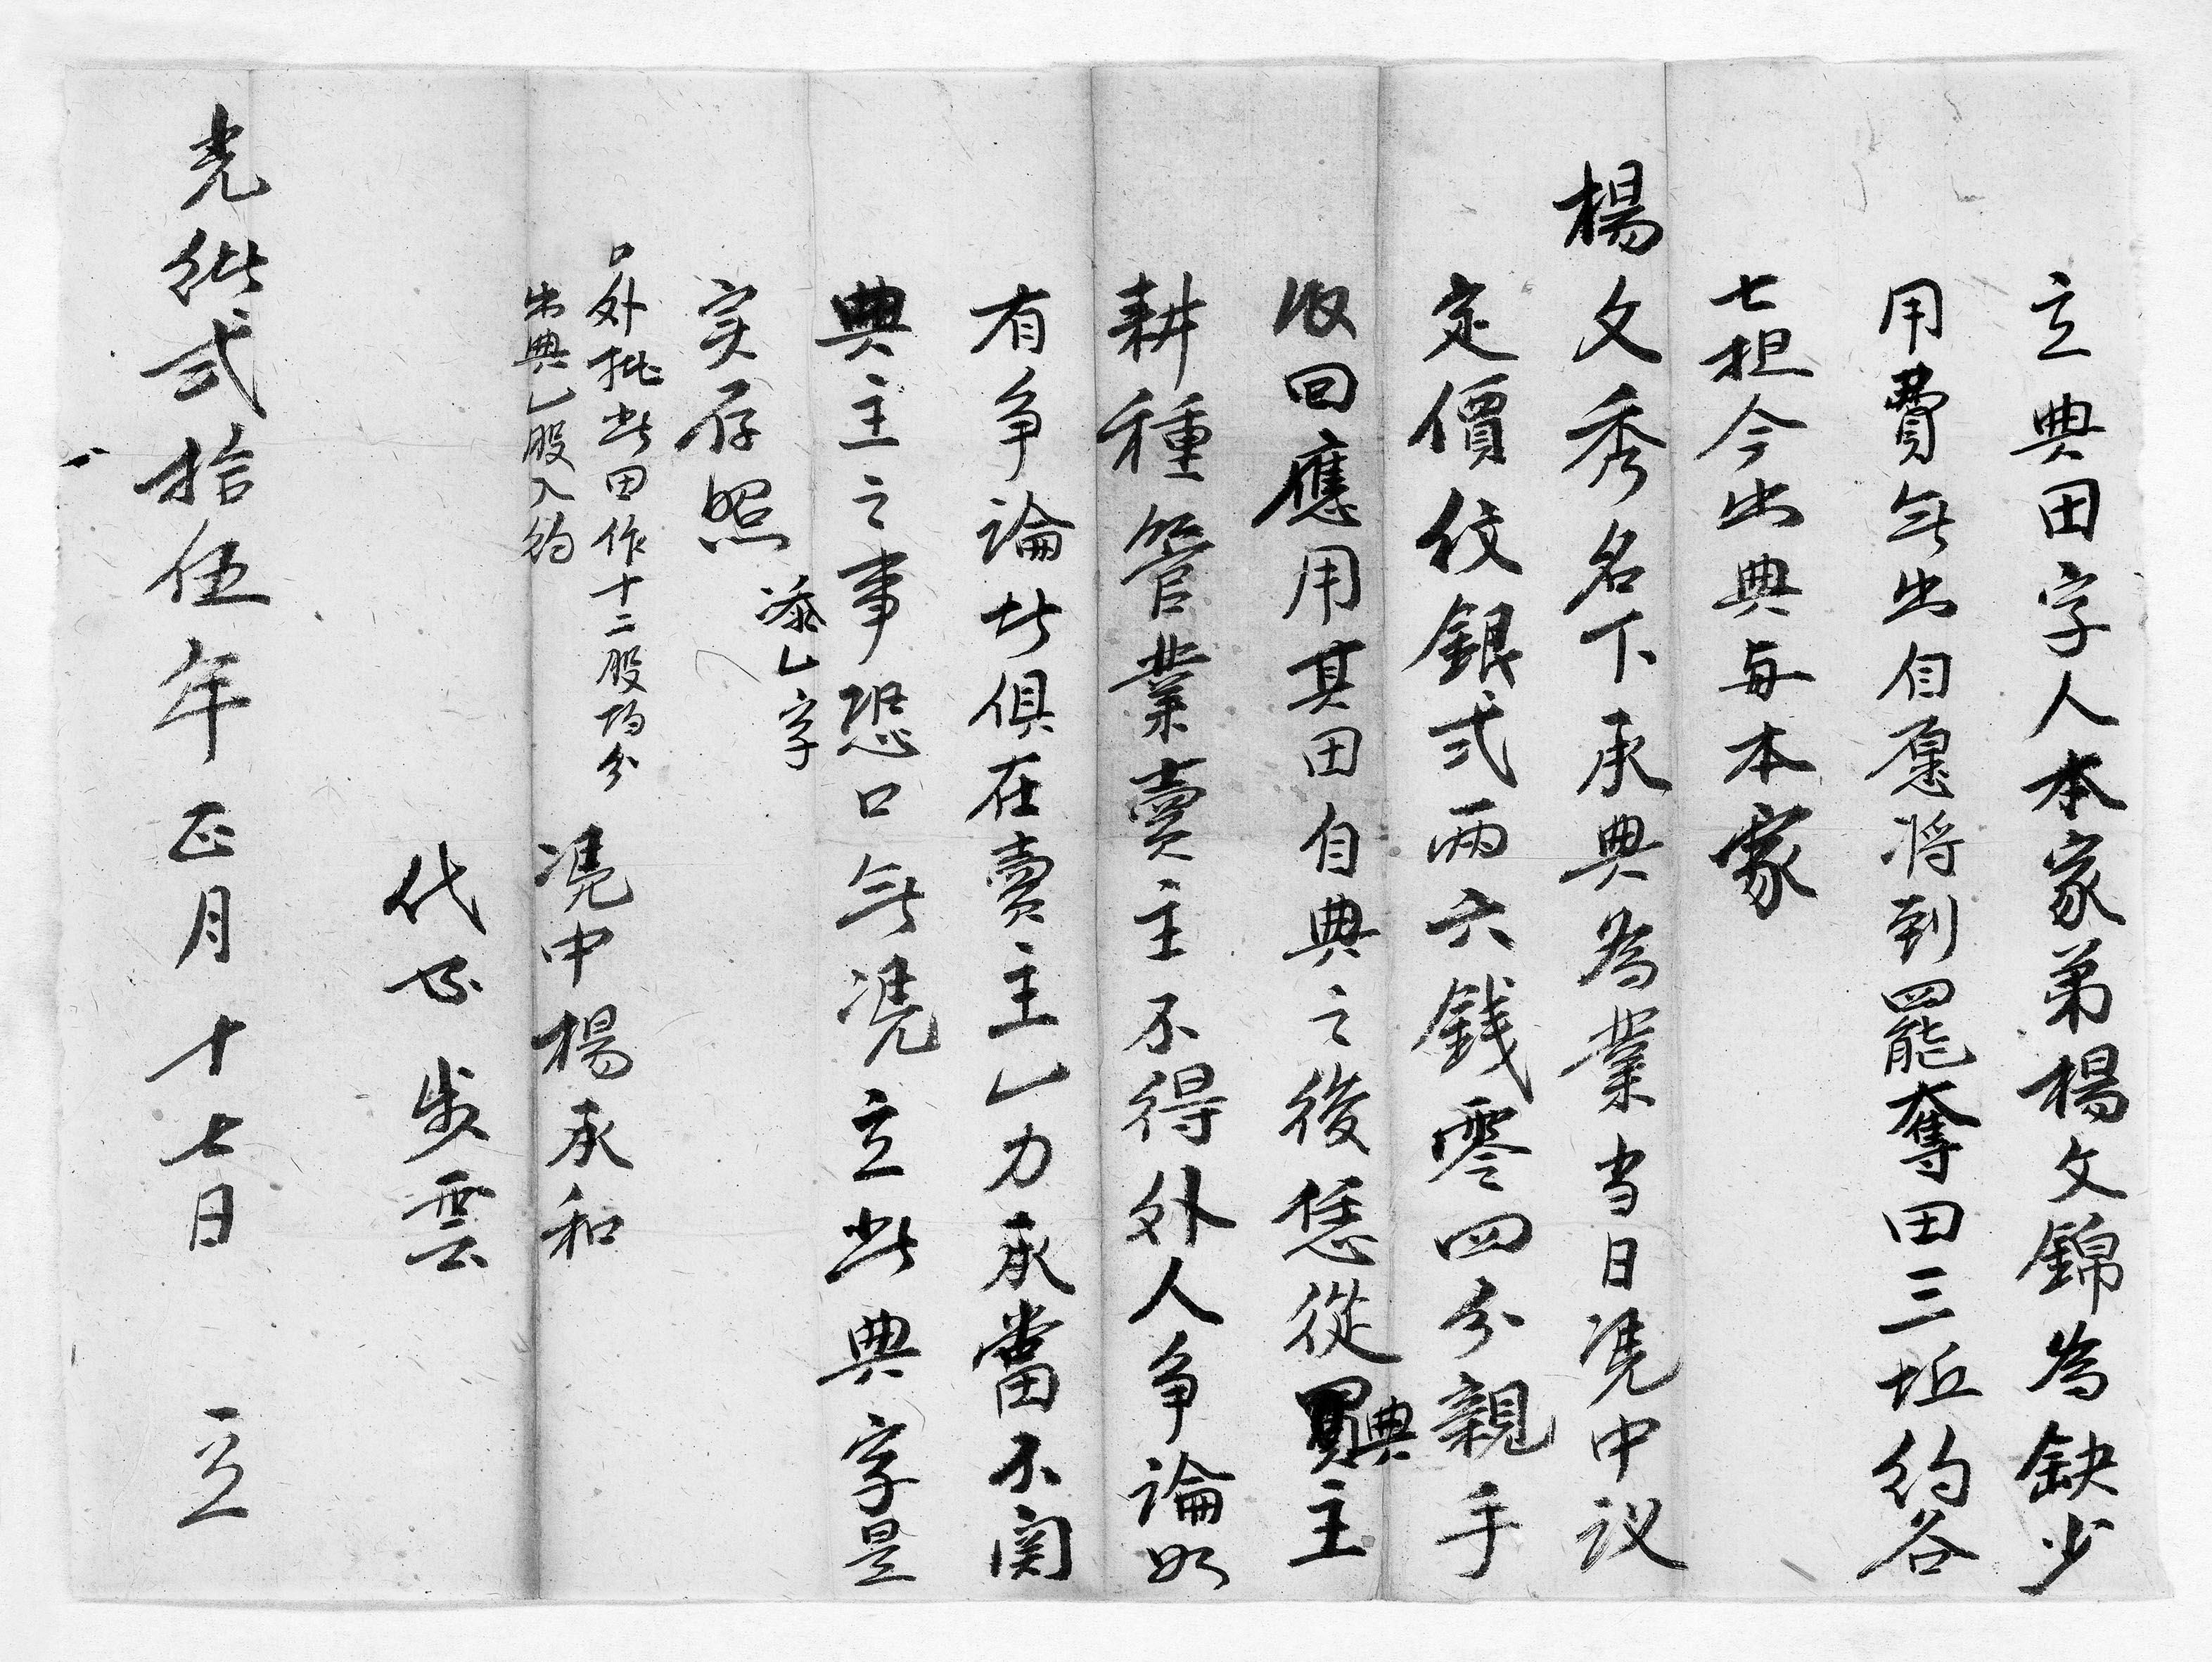 立典田字人本家弟楊文錦為缺少
用費無出自愿將到罷奪田三坵約谷
七担今出典与本家
楊文秀名下承典為業当日凴中议
定價仗銀弍两六銭零四分親手
收回應用其田自典之後恁從典主
耕種管業賣主不得外人争論如
有争論此俱在賣主乚力承當不関
典主之事恐口無凴立此典字是
实存照 添乚字
外批此田作十二股均分
出典乚股入約
凴中楊承和
代笔 步雲
光緒弍拾伍年正月十七日 立